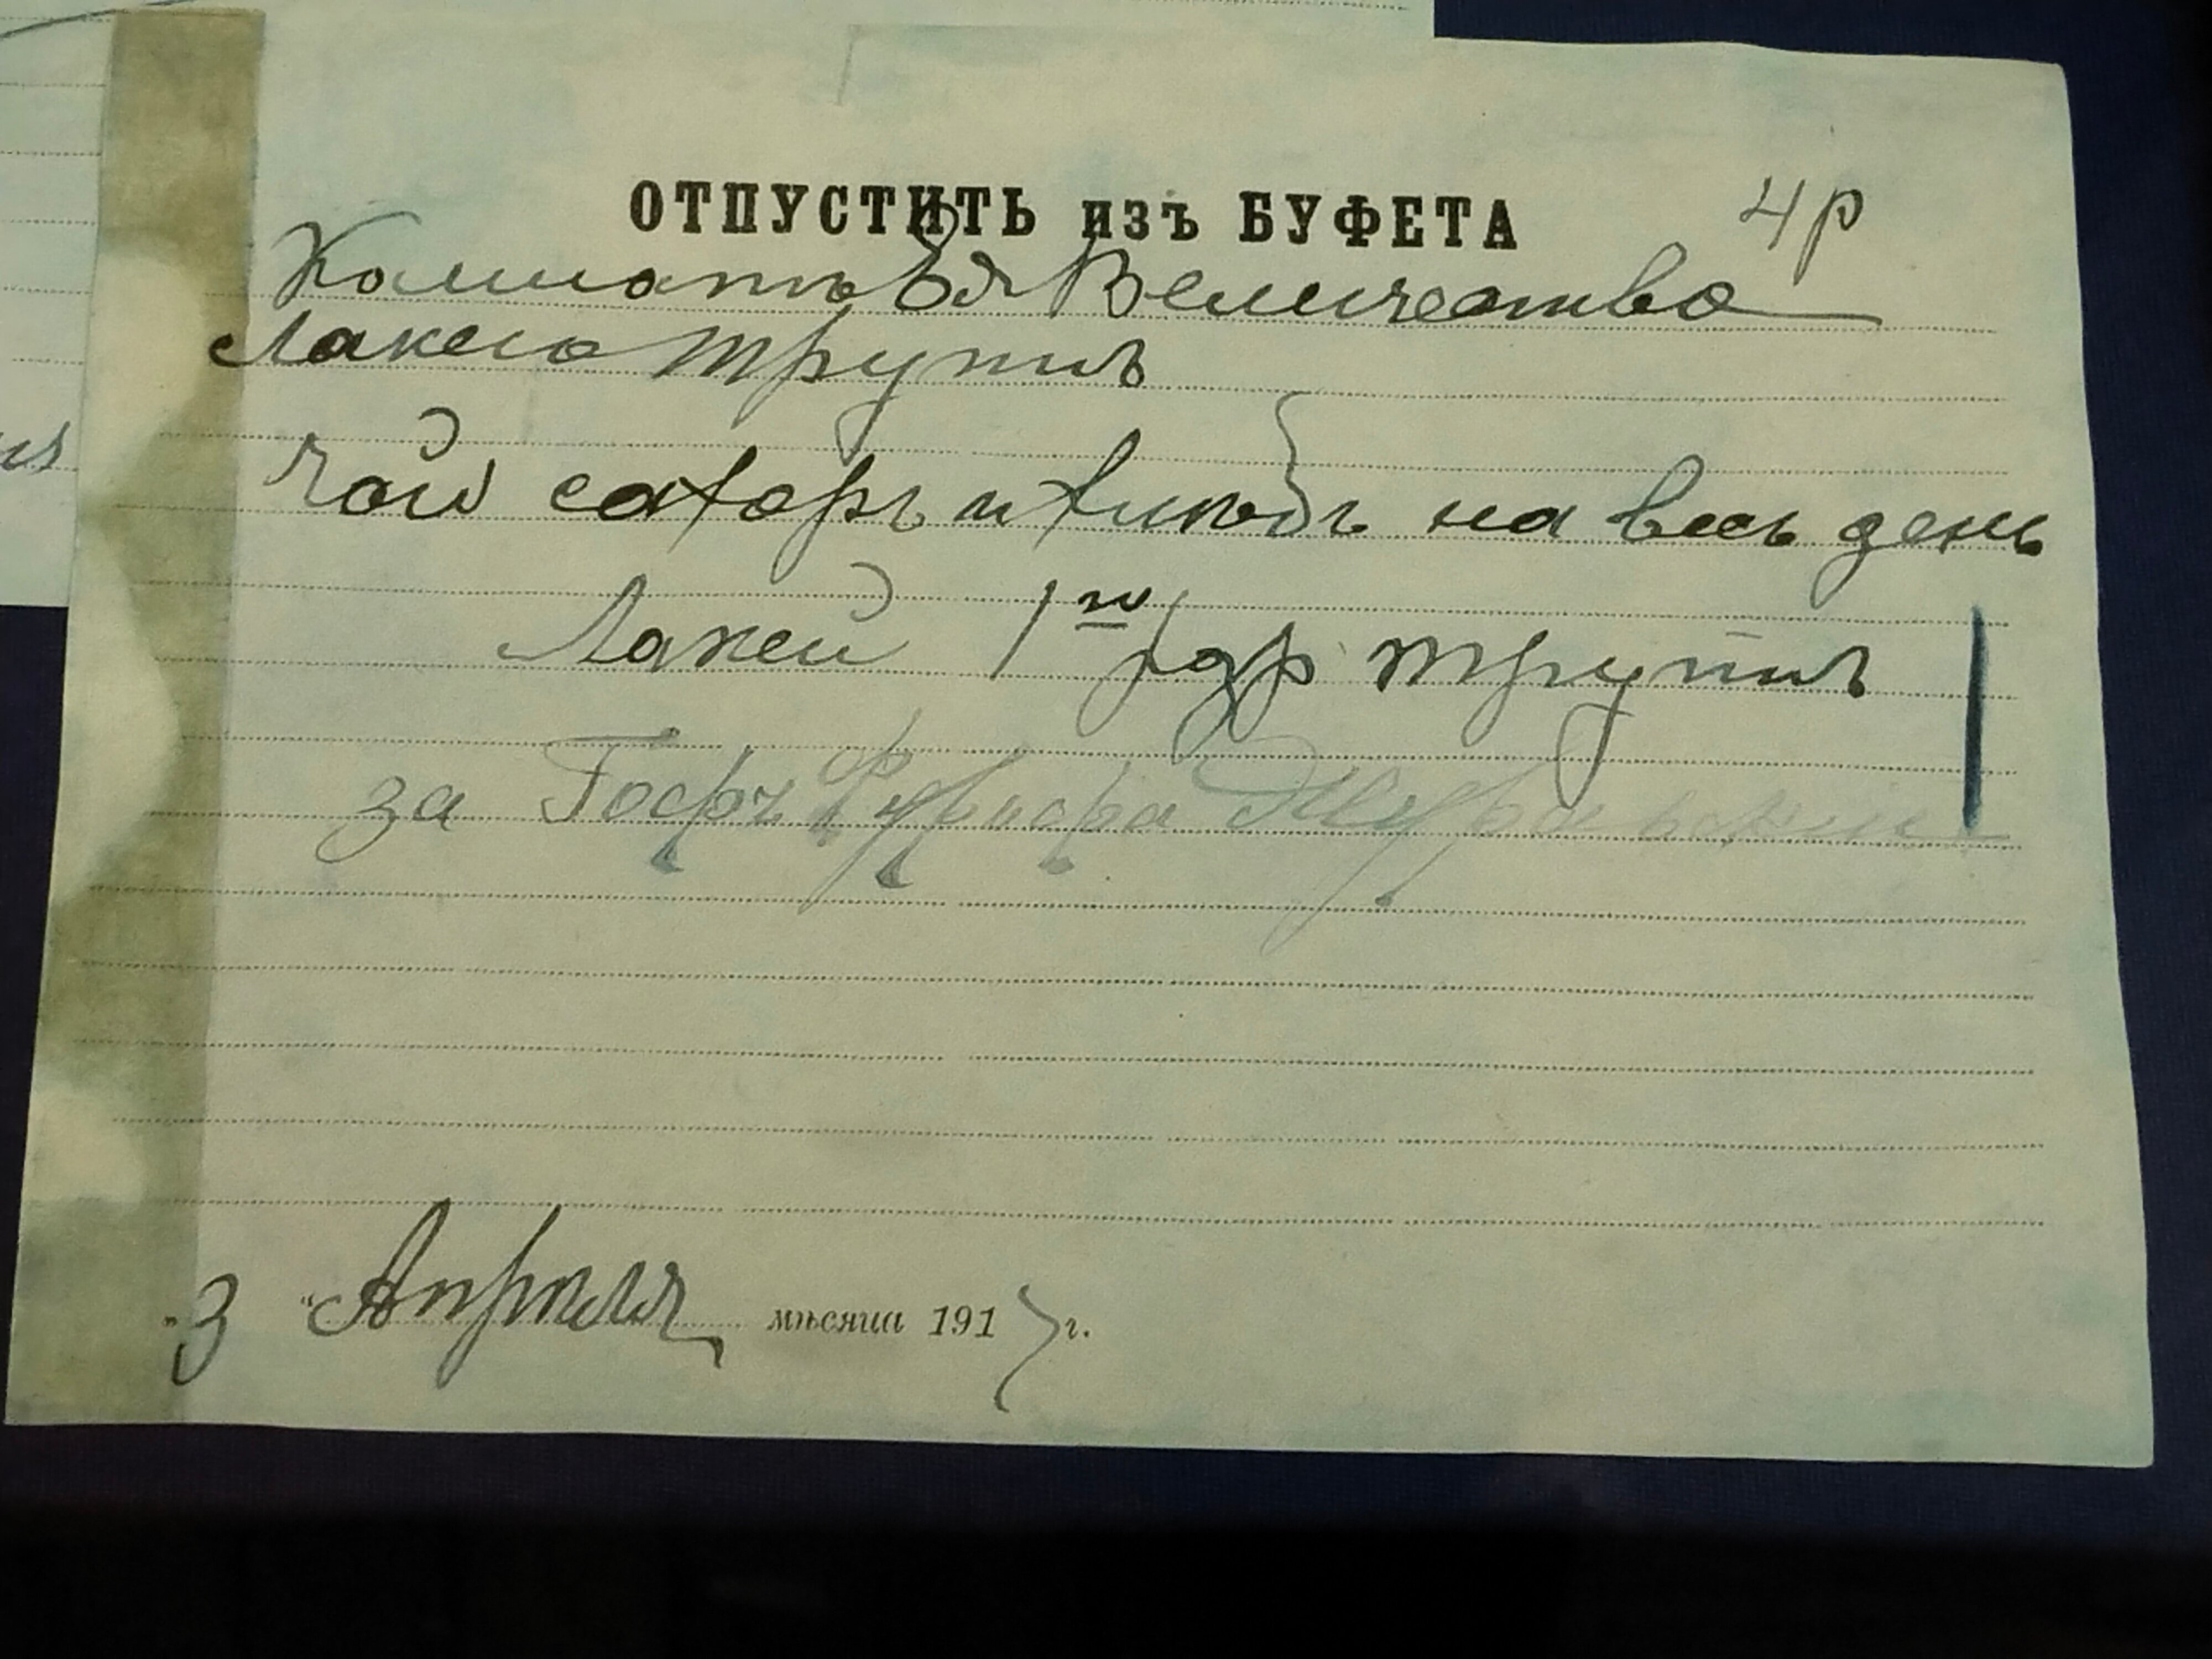 ОТПУСТИТЬ изъ БУФЕТА 4р
Комнатъ Ея Величества
Лакею Трупъ
Чай сахаръ и хлѣбъ на весь день
Лакей 1го Трупъ
за Гофъ Фурьера
3 "Апрѣля мѣсяца 1917 г.